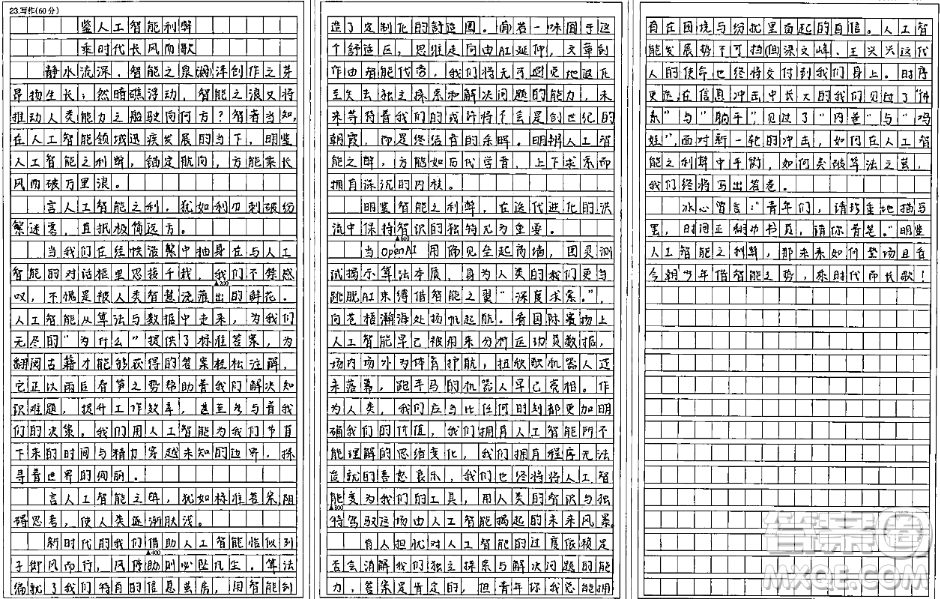 23.写作(60分)
鉴人工智能利弊
乘时代长风而歌
静水流深，智能之泉涵泽创作之芽
昂扬生长；然暗礁浮动，智能之浪又将
推动人类能力之船驶向何方？智者当知，
在人工智能领域迅疾发展的当下，明鉴
人工智能之利弊，锚定航向，方能乘长
风而破万里浪。
言人工智能之利，犹如利刃刺破纷
繁迷雾，直抵极简远方。
当我们在经帙浩繁中抽身在与人工
智能的对话框里思接千载，我们不禁感
叹，不愧是被人类智慧浇灌出的鲜花。
人工智能从算法与数据中走来，为我们
无尽的“为什么”提供了标准答案，为
翻阅古籍才能够获得的答案轻松注解，
它正以雨后春笋之势帮助着我们解决知
识难题，提升工作效率，甚至参与着我
们的决策。我们用人工智能为我们节省
下来的时间与精力穿越未知的边界，探
寻着世界的绚丽。
言人工智能之弊，犹如标准答案阻
碍思考，使人类逐渐肤浅。
▲200
新时代的我们借助人工智能恰似列
子御风而行，风停助则必坠凡尘。算法
编织了我们特有的信息茧房，用智能剖
▲400
造了定制化的舒适圈。倘若一味囿于这
个舒适区，思维走向由AI延伸，文章创
作由智能代劳，我们将无可避免地退化
至失去独立探索和解决问题的能力，未
来等待着我们的或许将不言是创世纪的
朝霞，而是终结者的余晖。明辨人工智
能之弊，方能如历代学者，上下求索而
拥有深沉的内核。
明鉴智能之利弊，在迭代进化的洪
流中保持智识的独特尤为重要。
▲600
当OpenAI用
试揭示算法本质，身为人类的我们更当
跳脱AI束缚借智能之翼“深度求索”，
向苍梧瀚海处扬帆起航。看国际赛场上
人工智能早已被用来分析运动员数据，
场内场外为体育护航，扭秧歌机器人迈
来落幕，跑半马的机器人早已亮相。作
为人类，我们应当比任何时刻都更加明
确我们的价值，我们拥有人工智能所不
能理解的思绪变化，我们拥有程序无法
造就的喜怒哀乐，我们也终将将人工智
能变为我们的工具，用人类的智识与独
▲800
特驾驭这场由人工智能掀起的未来风暴。
有人担忧对人工智能的过度依赖是
否会消解我们独立探索与解决问题的能
力，答案是肯定的，但青年你我总能拥
有在困境与纷扰里奋起的自信。人工智
能发展势不可挡但梁文峰、王兴兴这代
人的使命也终将交付到我们身上。时序
更迭，在信息冲击中长大的我们见过了“佛
系”与“躺平”，见过了“内卷”与“鸡
娃”，面对新一轮的冲击，如何在人工智
能之利弊中平衡，如何去破算法之茧，
我们终将写出答卷。
冰心留言：“青年们，请珍重地描写
罢，时间正翻动书页，请你着笔。”明鉴
人工智能之利弊，那未来如何登场且看
今朝少年借智能之势，乘时代而长歌！
答案圈
MXQE.COM